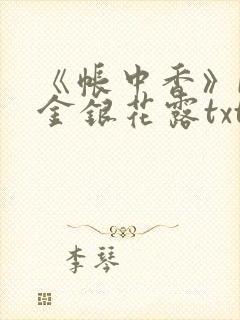 《帐中香》
金银花露txt
李琴